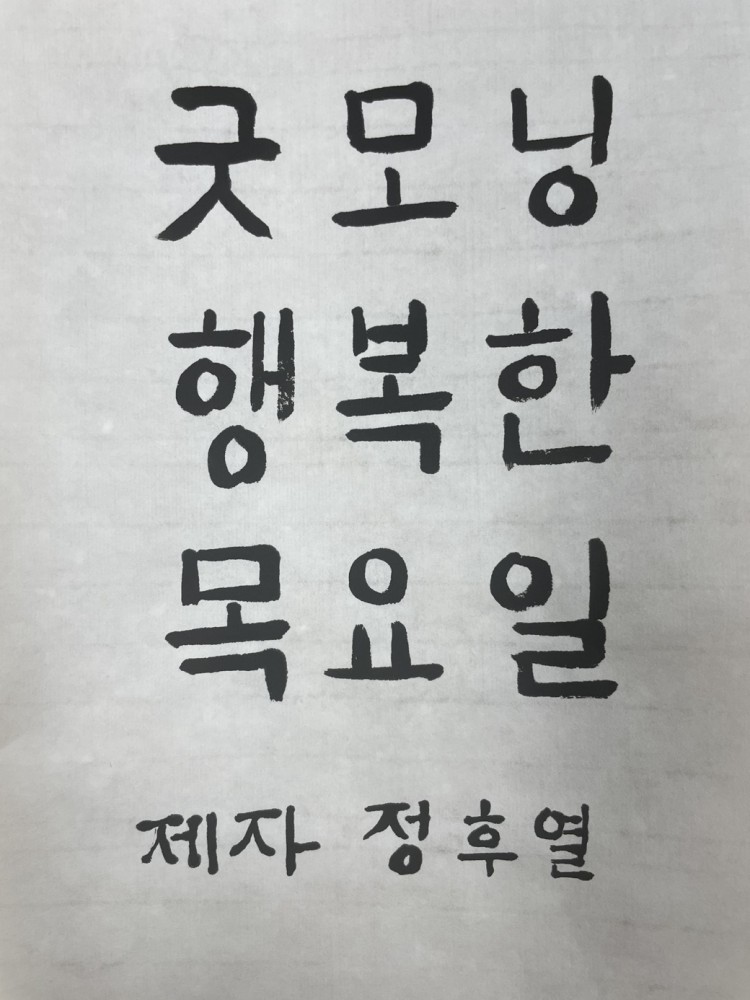 굿모닝
행복한
목요일
제자 정후열